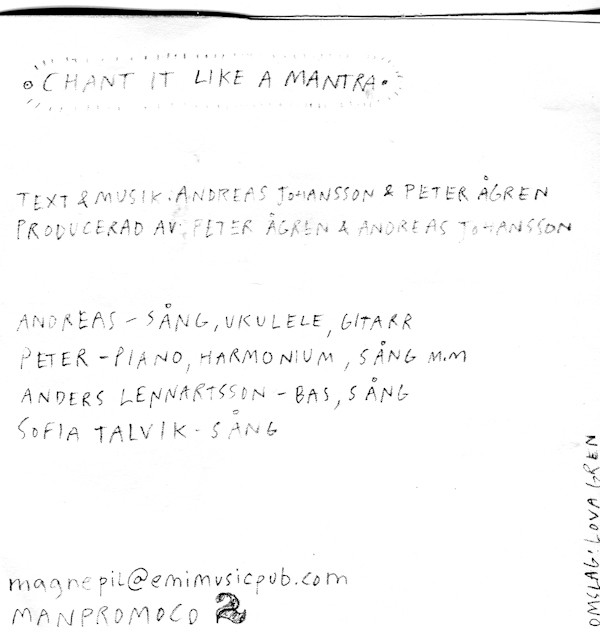 CHANT IT LIKE A MANTRA.
TEXT & MUSIK: ANDREAS JOHANSSON & PETER ÅGREN
PRODUCERAD AV: PETER ÅGREN & ANDREAS JOHANSSON
ANDREAS - SÅNG, UKULELE, GITARR
PETER - PIANO, HARMONIUM, SÅNG M.M
ANDERS LENNARTSSON - BAS, SÅNG
SOFIA TALVIK - SÅNG
OMSLAG: LOVA GREN
magnepil@emimusicpub.com
MANPROMOCD 2